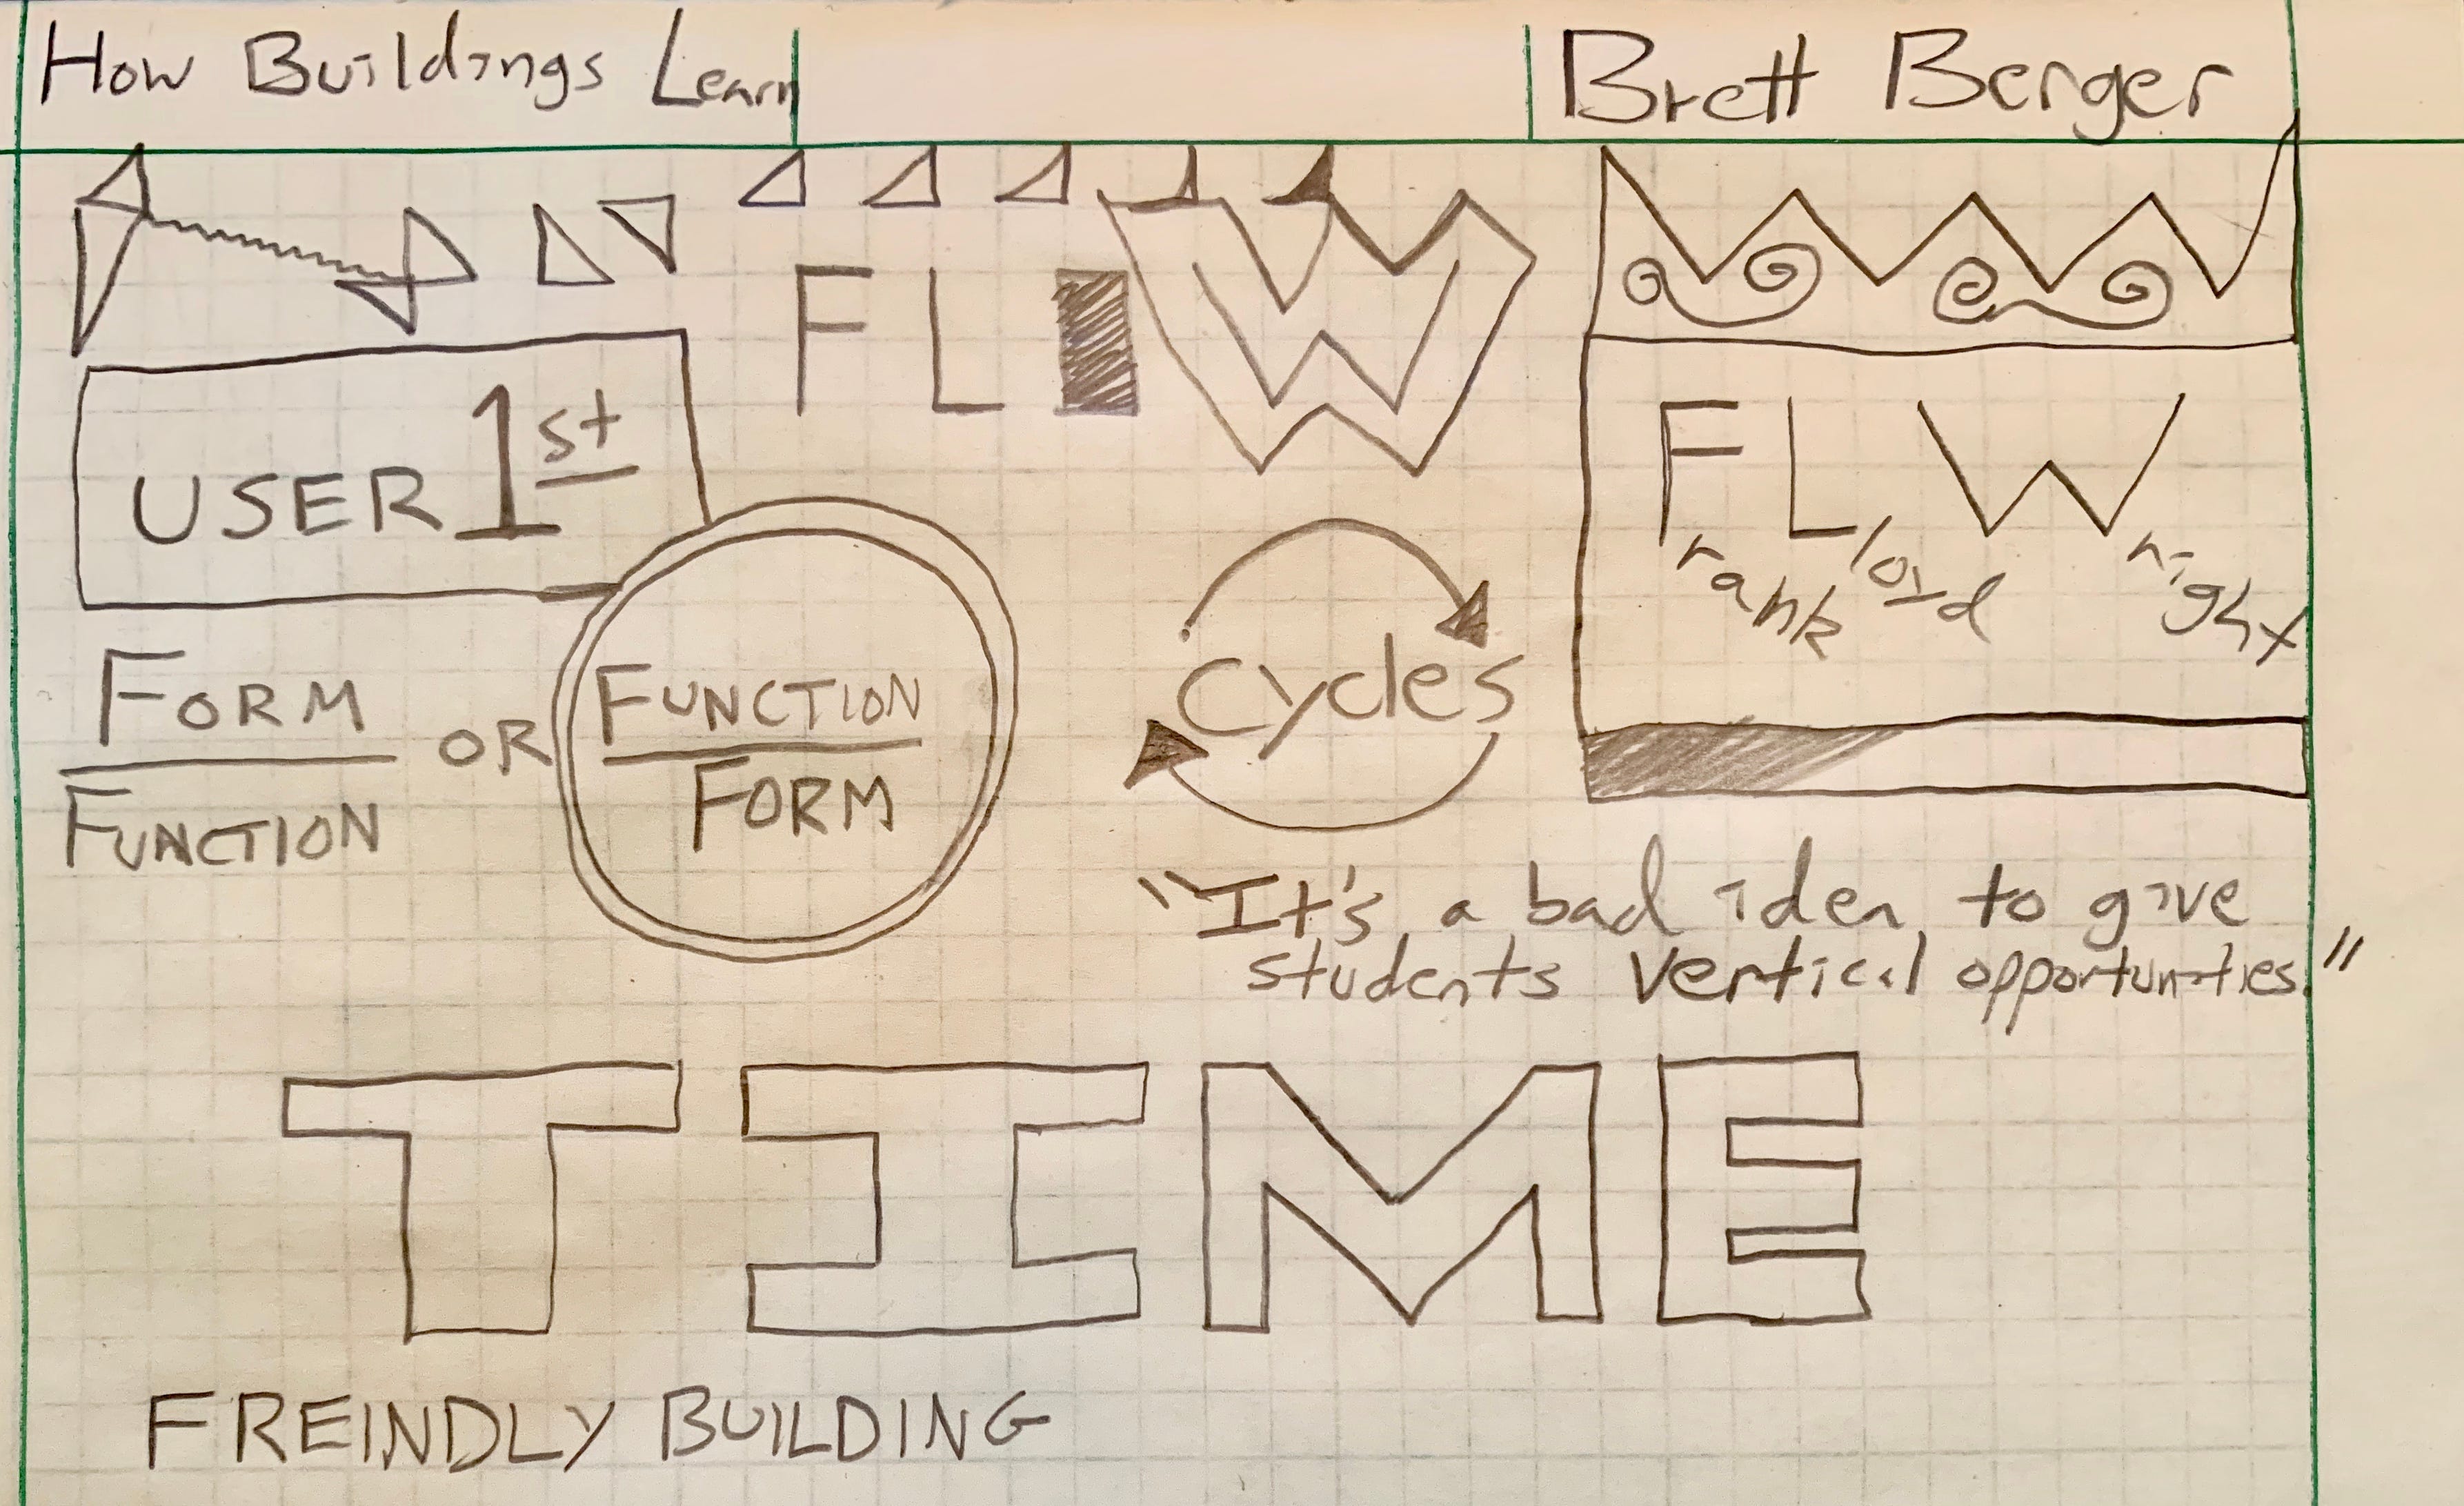 How Buildings Learn
Brett Berger
FL W
USER 1st
FLW
Frank Lloyd Wright
FORM
FUNCTION
OR
FUNCTION
FORM
Cycles
"It's a bad idea to give
students vertical opportunities."
TIME
FREINDLY BUILDING